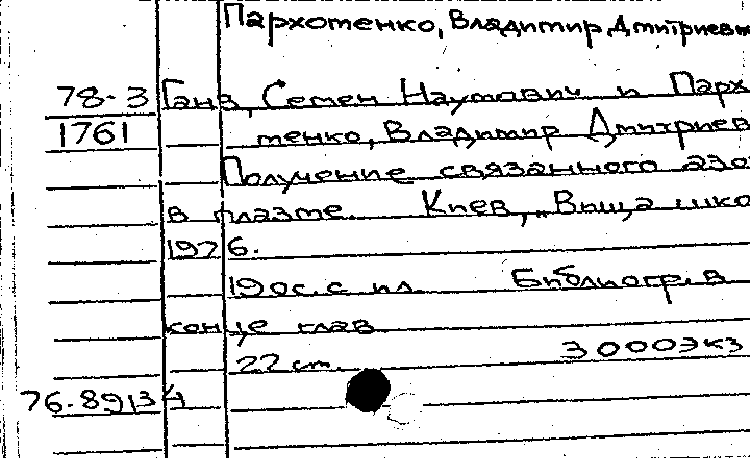 Пархоменко, Владимир Дмитриеви
78-3 Ганз, Семен Наумович и Парх
1761 менко, Владимир Дмитриев
Получение связанного азо
в плазме. Киев, "Вища шко
1976.
190с. с ил. Библиогр. в
конце глав
22 см. 3000экз
76-89134